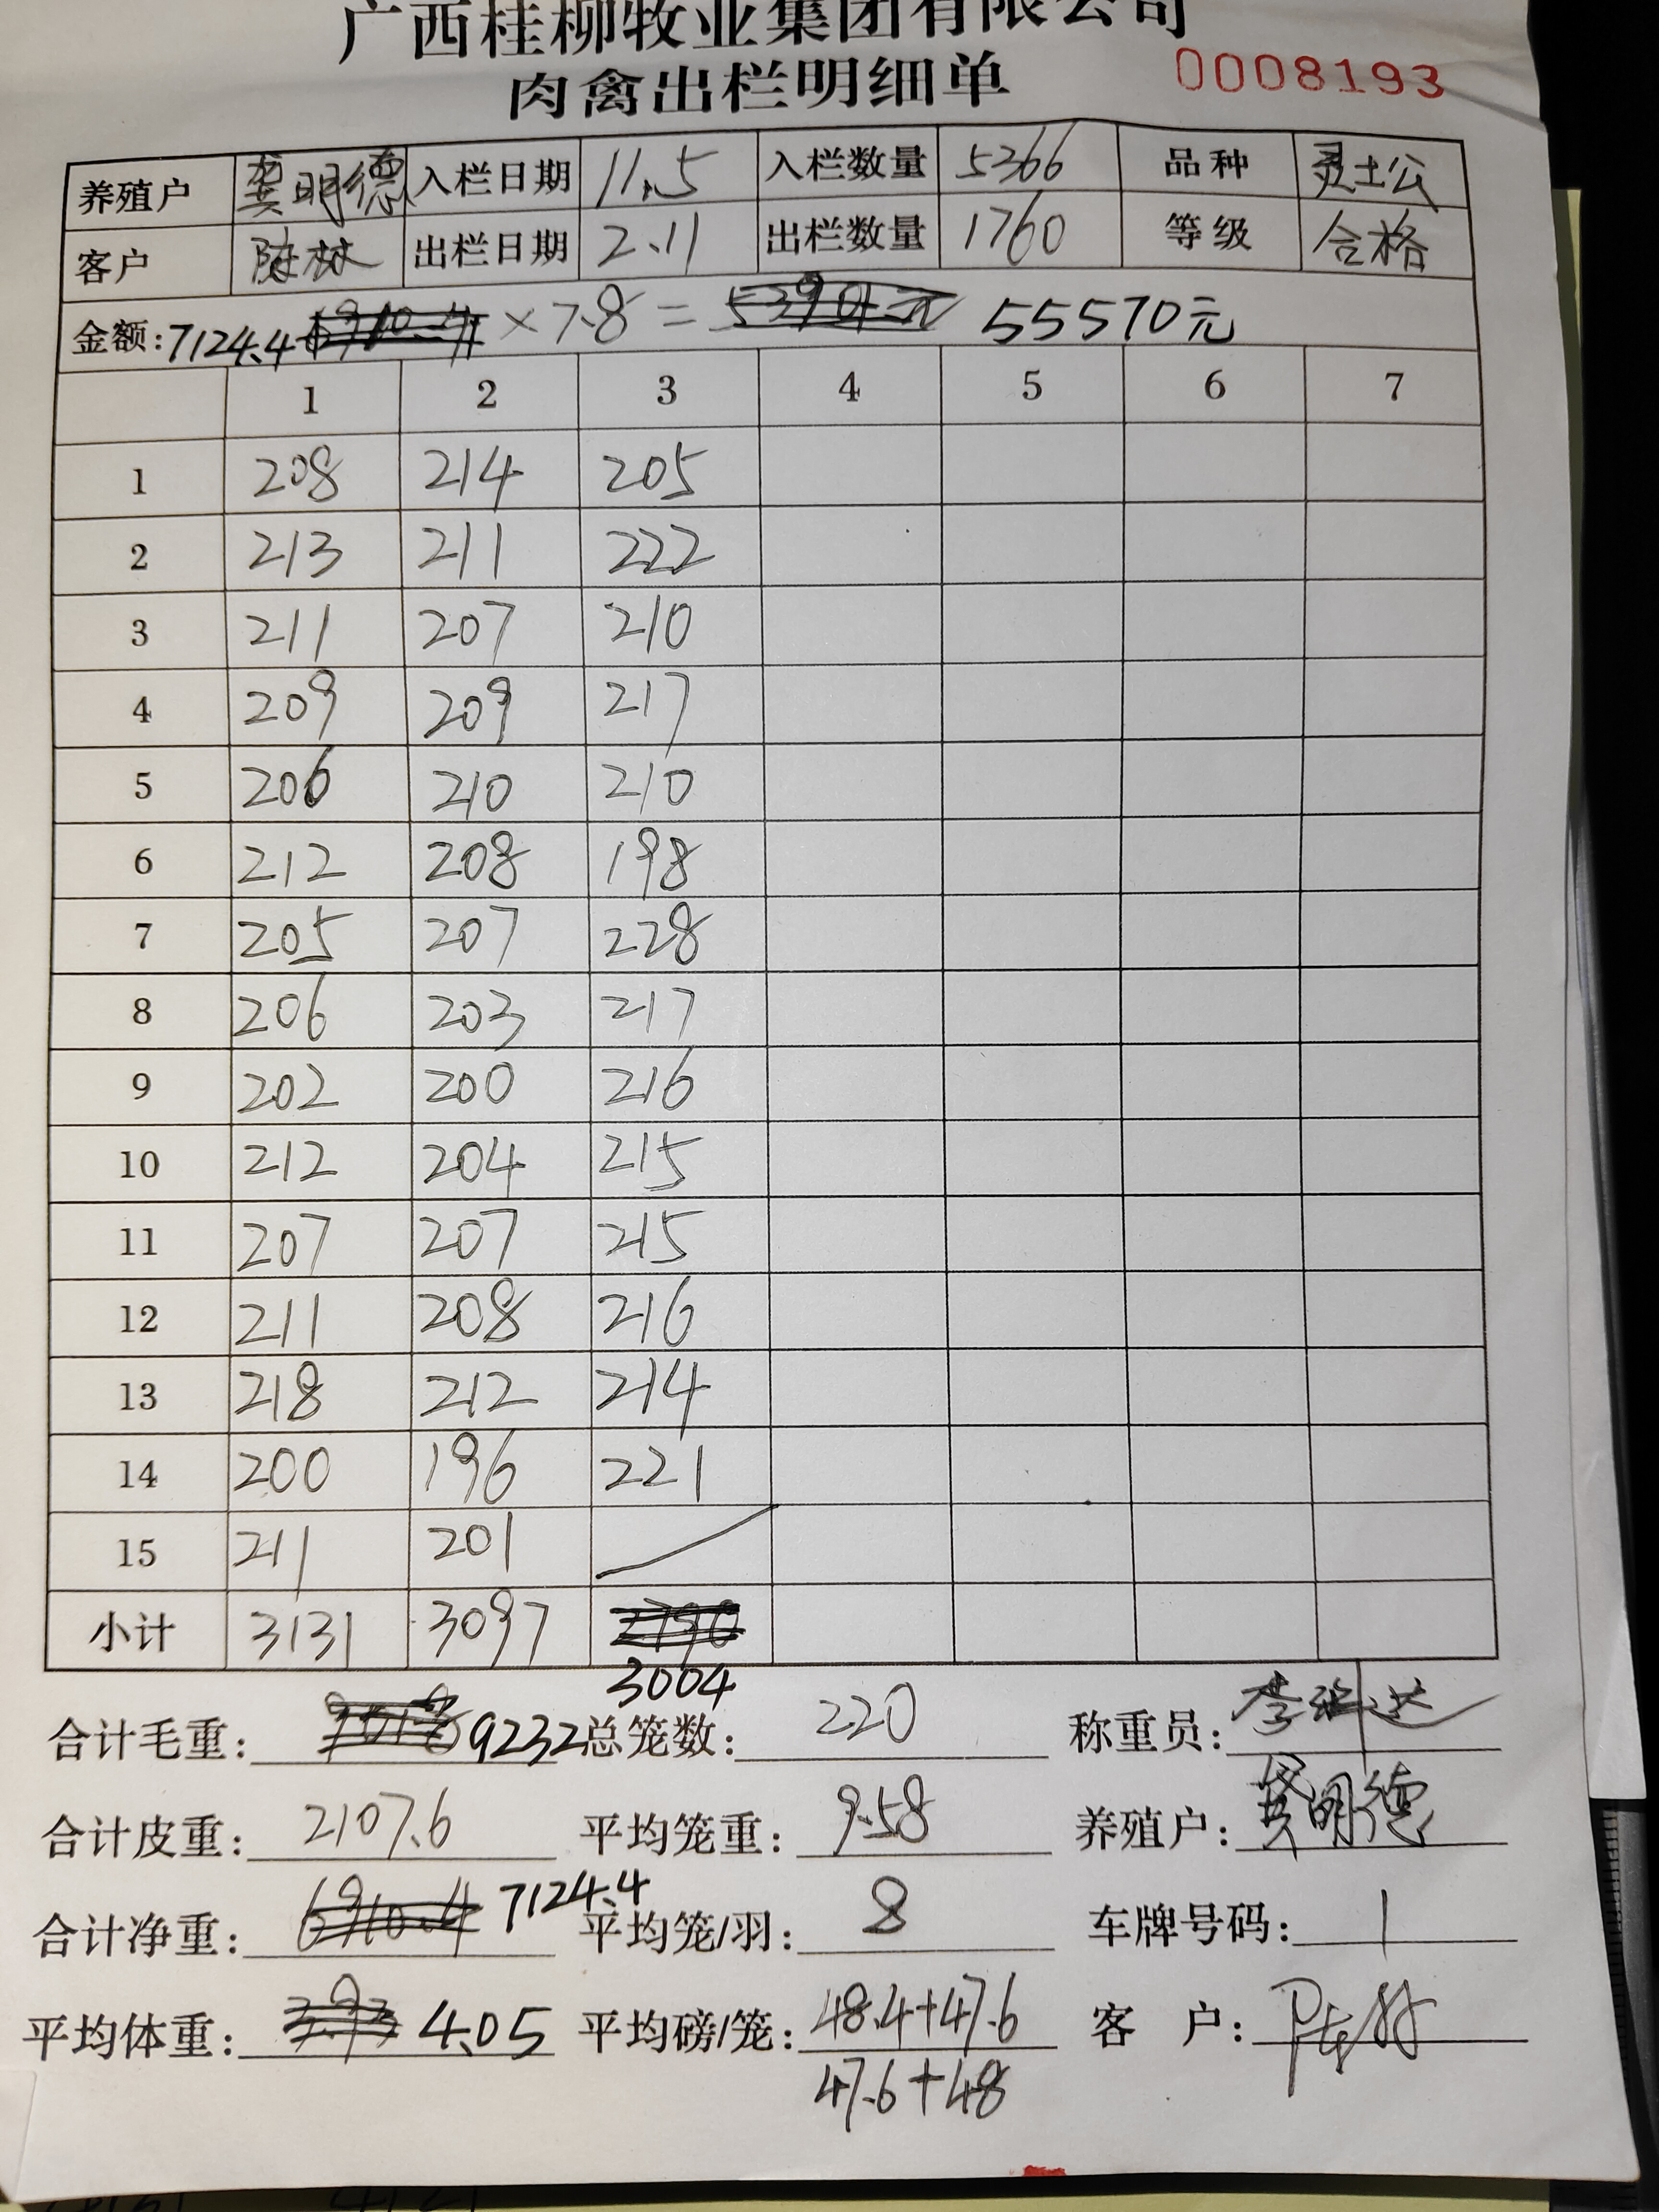 广西桂柳牧业集团有限公司
肉禽出栏明细单 0008193
养殖户 龚明德 入栏日期 11.5 入栏数量 5366 品种 灵土公
客户 陆林 出栏日期 2.11 出栏数量 1760 等级 合格
金额:7124.4 × 7.8 = 55570元
1 2 3 4 5 6 7
1 208 214 205
2 213 211 222
3 211 207 210
4 209 209 217
5 206 210 210
6 212 208 198
7 205 207 228
8 206 203 217
9 202 200 216
10 212 204 215
11 207 207 215
12 211 208 216
13 218 212 214
14 200 196 221
15 211 201
小计 3131 3097
3004
合计毛重: 9232 总笼数: 220 称重员:
合计皮重: 2107.6 平均笼重: 9.58 养殖户: 龚明德
合计净重: 7124.4 平均笼/羽: 8 车牌号码: 1
平均体重: 4.05 平均磅/笼: 48.4+47.6 客 户:
47.6+48